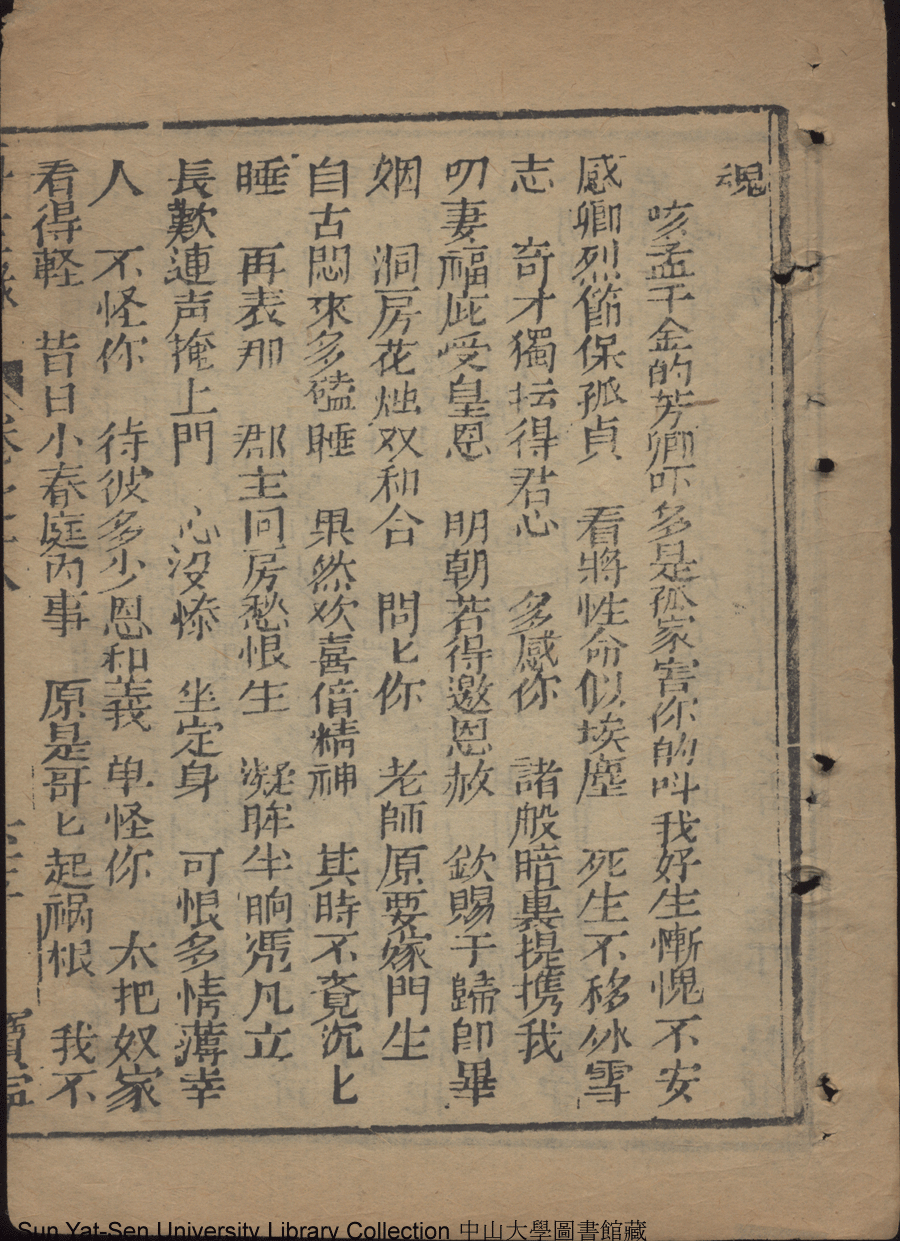 魂
咳孟千金的芳卿吓多是孤家害你的呌我好生慚愧不安
感卿烈節保孤貞　看將性命似埃塵　死生不移氷雪
志　奇才獨坛得君心　多感你　諸般暗裏提携我
叨妻福庇受皇恩　明朝若得邀恩赦　欽賜于歸即畢
姻　洞房花烛双和合　問匕你　老師原要嫁門生
自古悶來多磕睡　果然欢喜倍精神　其時不竟沉匕
睡　再表那　郡主回房愁恨生　凝眸半晌凭凡立
長歎連声掩上門　心没憀　坐定身　可恨多情薄幸
人　不怪你　待彼多少恩和義　单怪你　太把奴家
看得軽　昔日小春庭內事　原是哥匕起祸根　我不
Sun Yat-Sen University Library Collection 中山大學圖書館藏